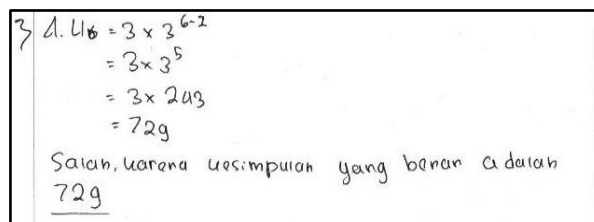 3 A. U6 = 3 × 3^6-2
= 3 × 3^5
= 3 × 243
= 729
Salah, karena kesimpulan yang benar adalah
729